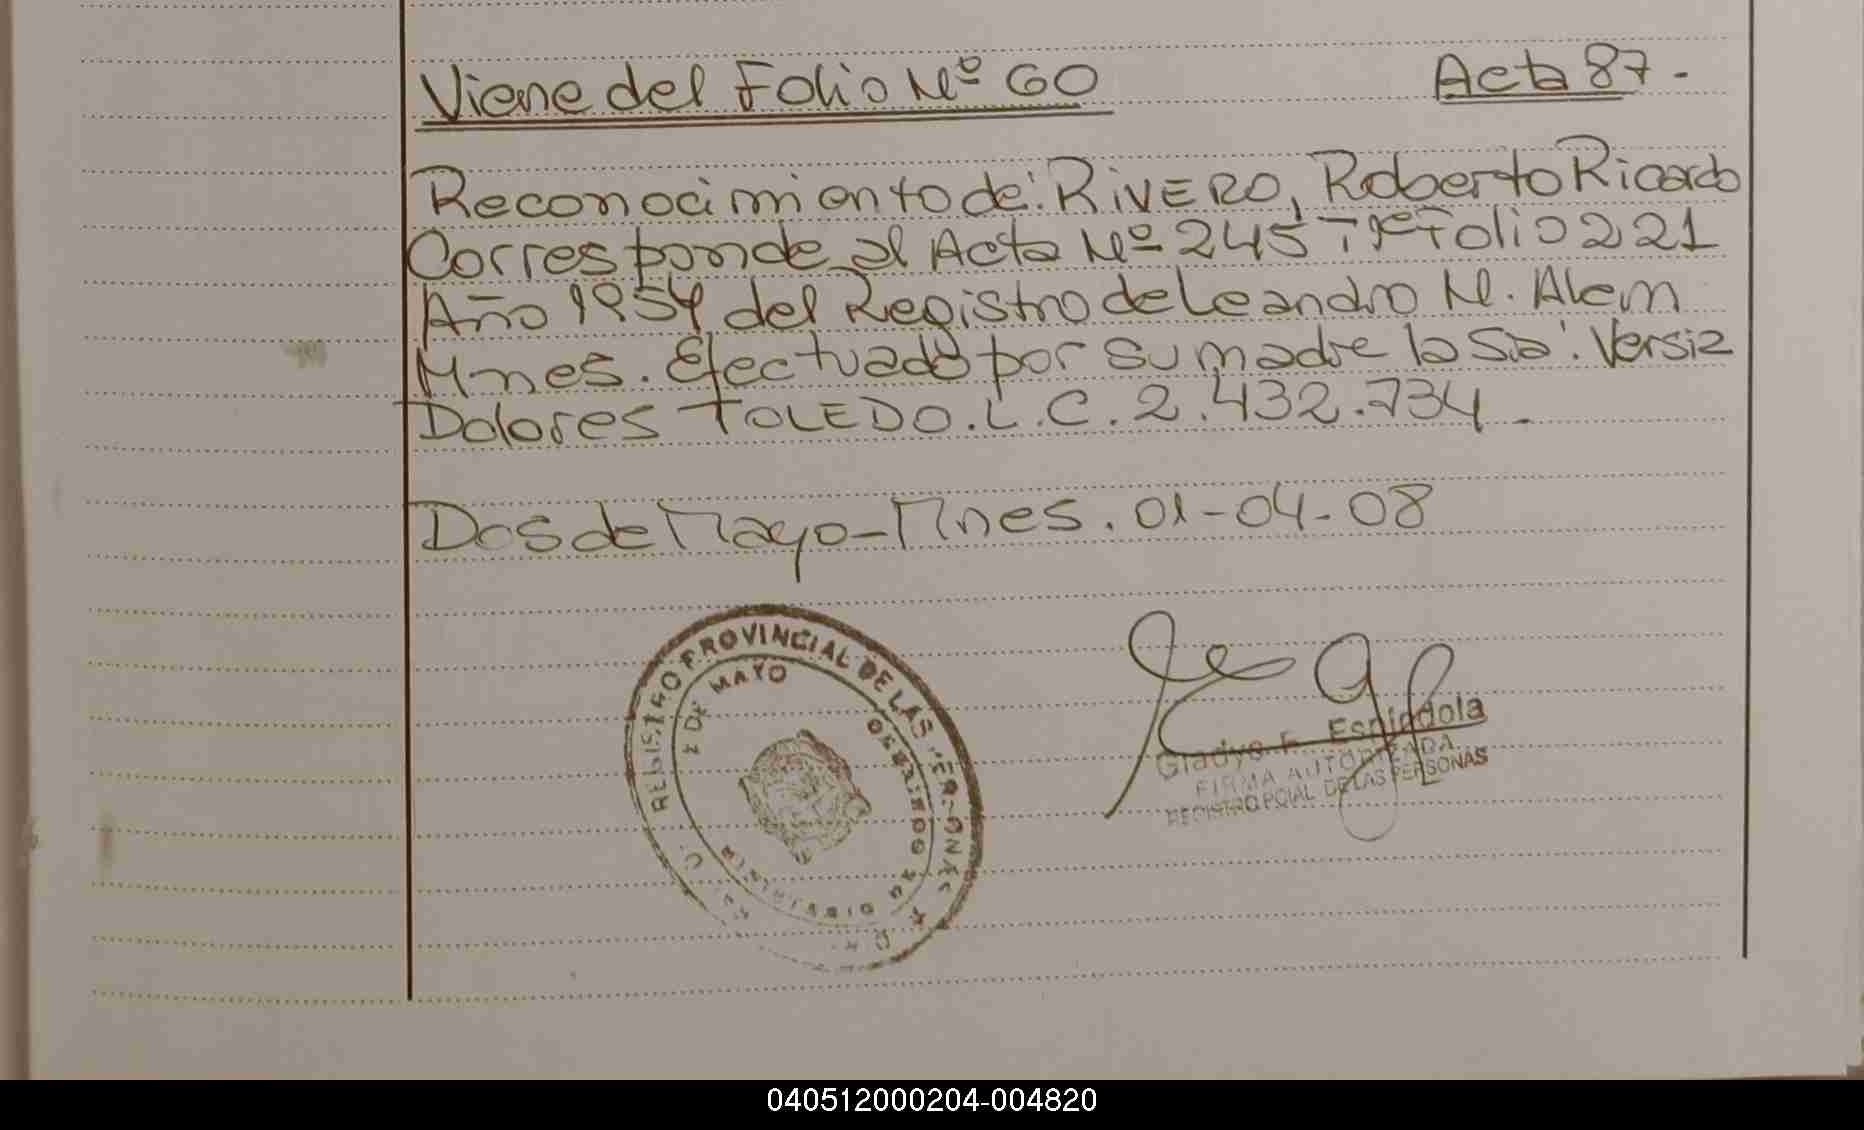 Viene del Folio Nº 60 Acta 87.-
Reconocimiento de: RIVERO, Roberto Ricardo
Corresponde al Acta Nº 245 Tº 1º Folio 221
Año 1954 del Registro de Leandro N. Alem
Mnes. Efectuado por su madre la Sra. Versia
Dolores TOLEDO. L.C. 2.432.734.-
Dos de Mayo - Mnes. 01-04-08
REGISTRO PROVINCIAL DE LAS PERSONAS
2 DE MAYO
Gladys F. Espindola
FIRMA AUTORIZADA
REGISTRO PCIAL DE LAS PERSONAS
040512000204-004820